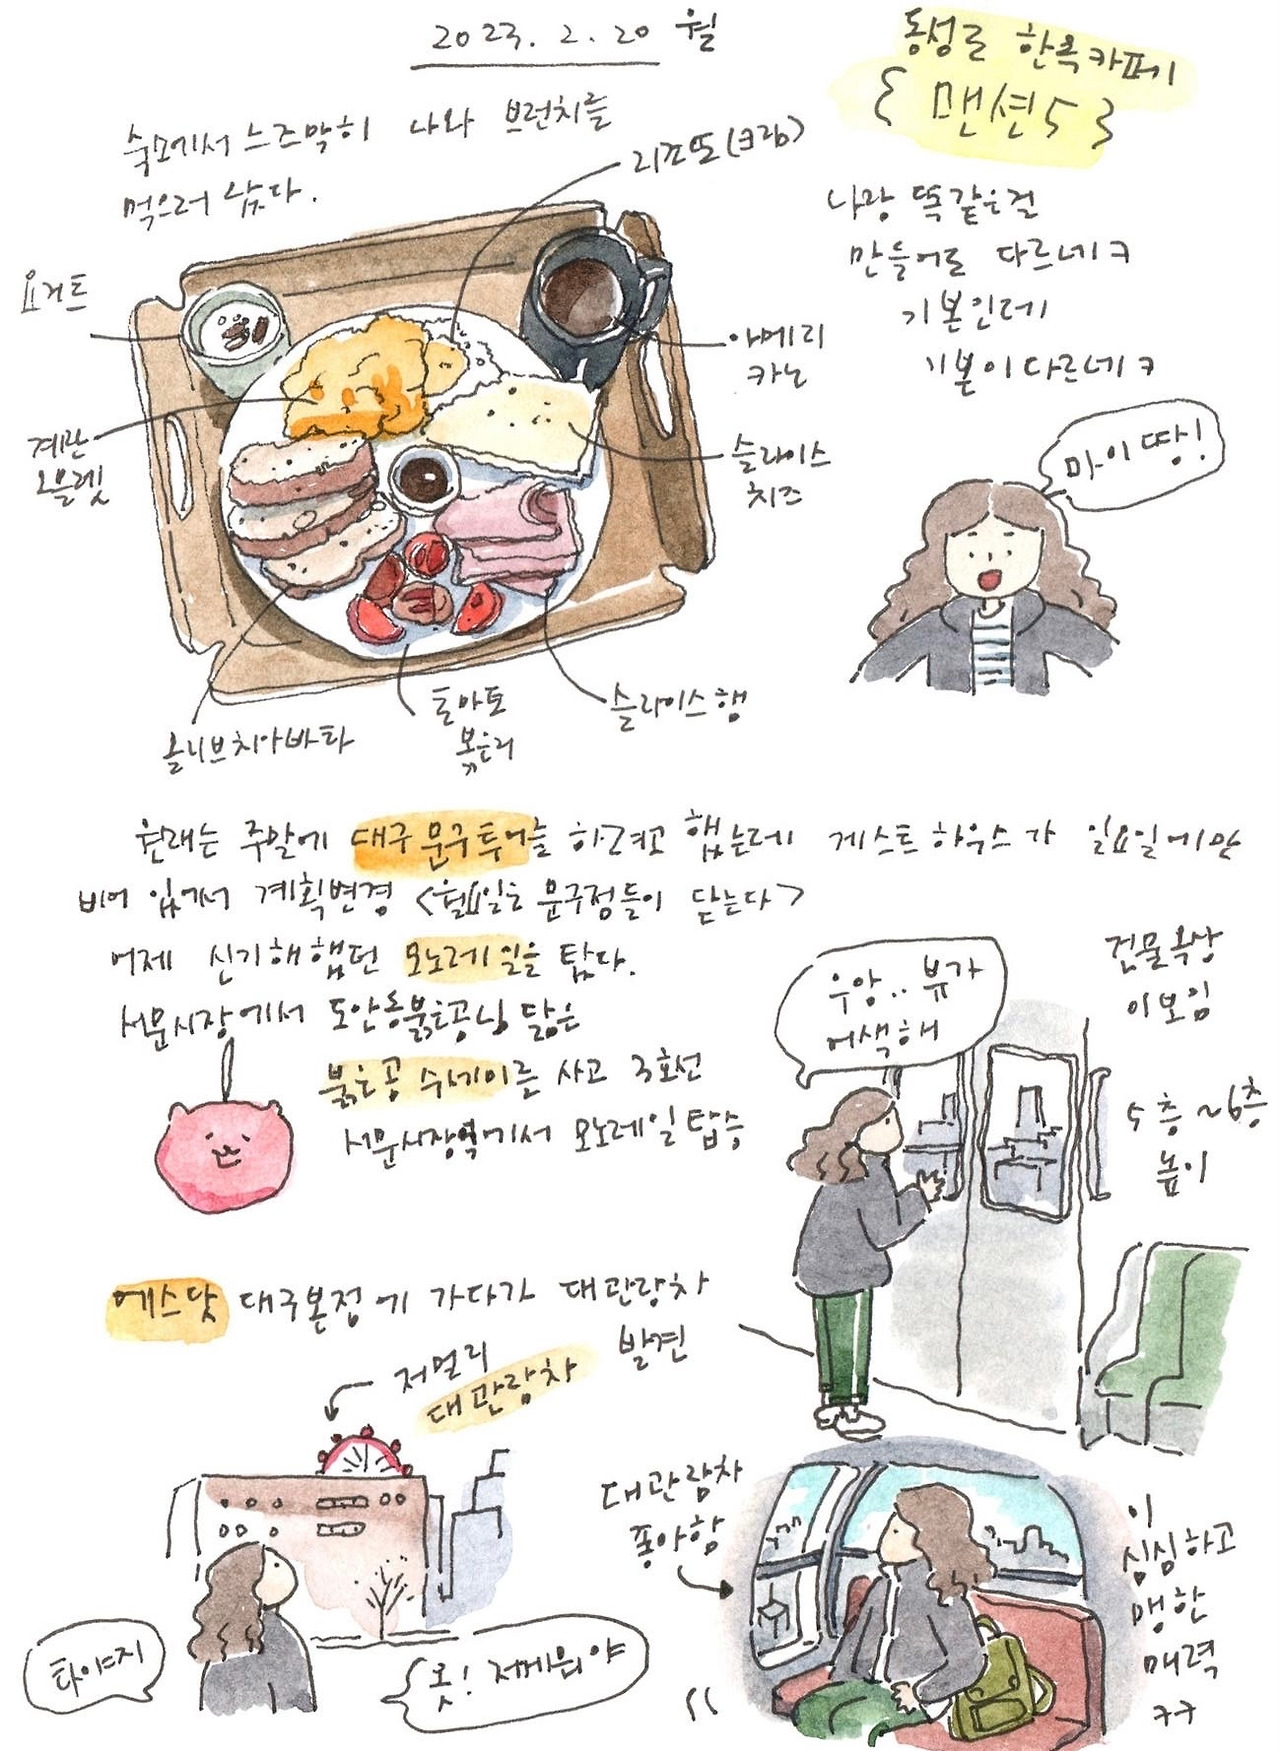 2023. 2. 20 월
동성로 한옥카페
{ 맨션5 }
숙소에서 느즈막히 나와 브런치를
먹으러 갔다.
리조또(크림)
요거트
계란
오믈렛
아메리
카노
슬라이스
치즈
올리브치아바타
토마토
볶은거
슬라이스햄
나랑 똑같은걸
만들어도 다르네ㅋ
기본인데
기본이 다르네ㅋ
마이땅!
원래는 주말에 대구문구투어를 하려고 했는데 게스트하우스가 일요일에만
비어 있어서 계획변경 <월요일은 문구점들이 닫는다>
어제 신기해했던 모노레일을 탔다.
서문시장에서 도안동붉은공님 닮은
붉은공 수세미를 사고 3호선
서문시장역에서 모노레일탑승
우앙.. 뷰가
어색해
건물옥상
이보임
5층~6층
높이
에스닷 대구본점에 가다가 대관람차
발견
저멀리
대관람차
타야지
옷! 저게뭐야
대관람차
좋아함
이
심심하고
맹한
매력
ㅋㅋ